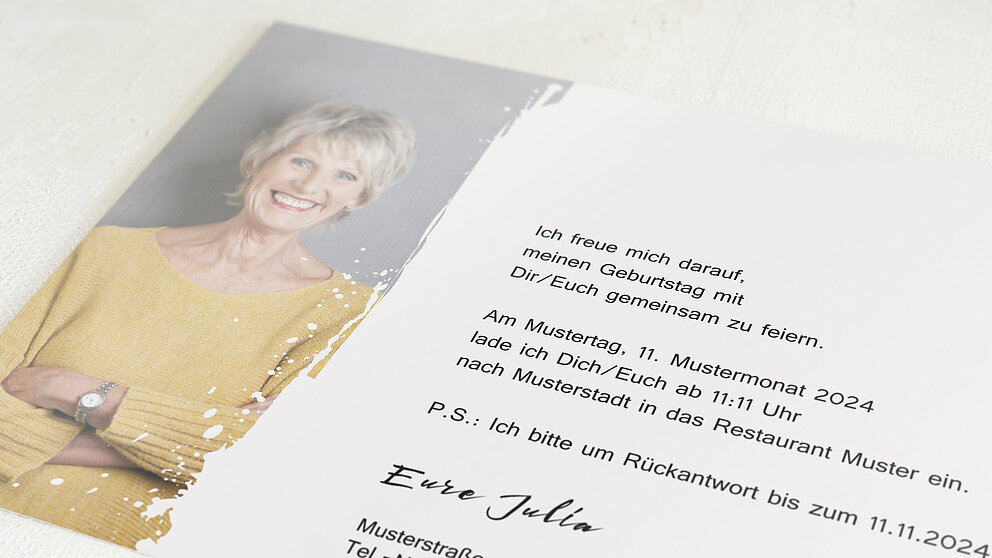 Ich freue mich darauf,
meinen Geburtstag mit
Dir/Euch gemeinsam zu feiern.
Am Mustertag, 11. Mustermonat 2024
lade ich Dich/Euch ab 11:11 Uhr
nach Musterstadt in das Restaurant Muster ein.
P.S.: Ich bitte um Rückantwort bis zum 11.11.2024
Eure Julia
Musterstraße
Tel.-